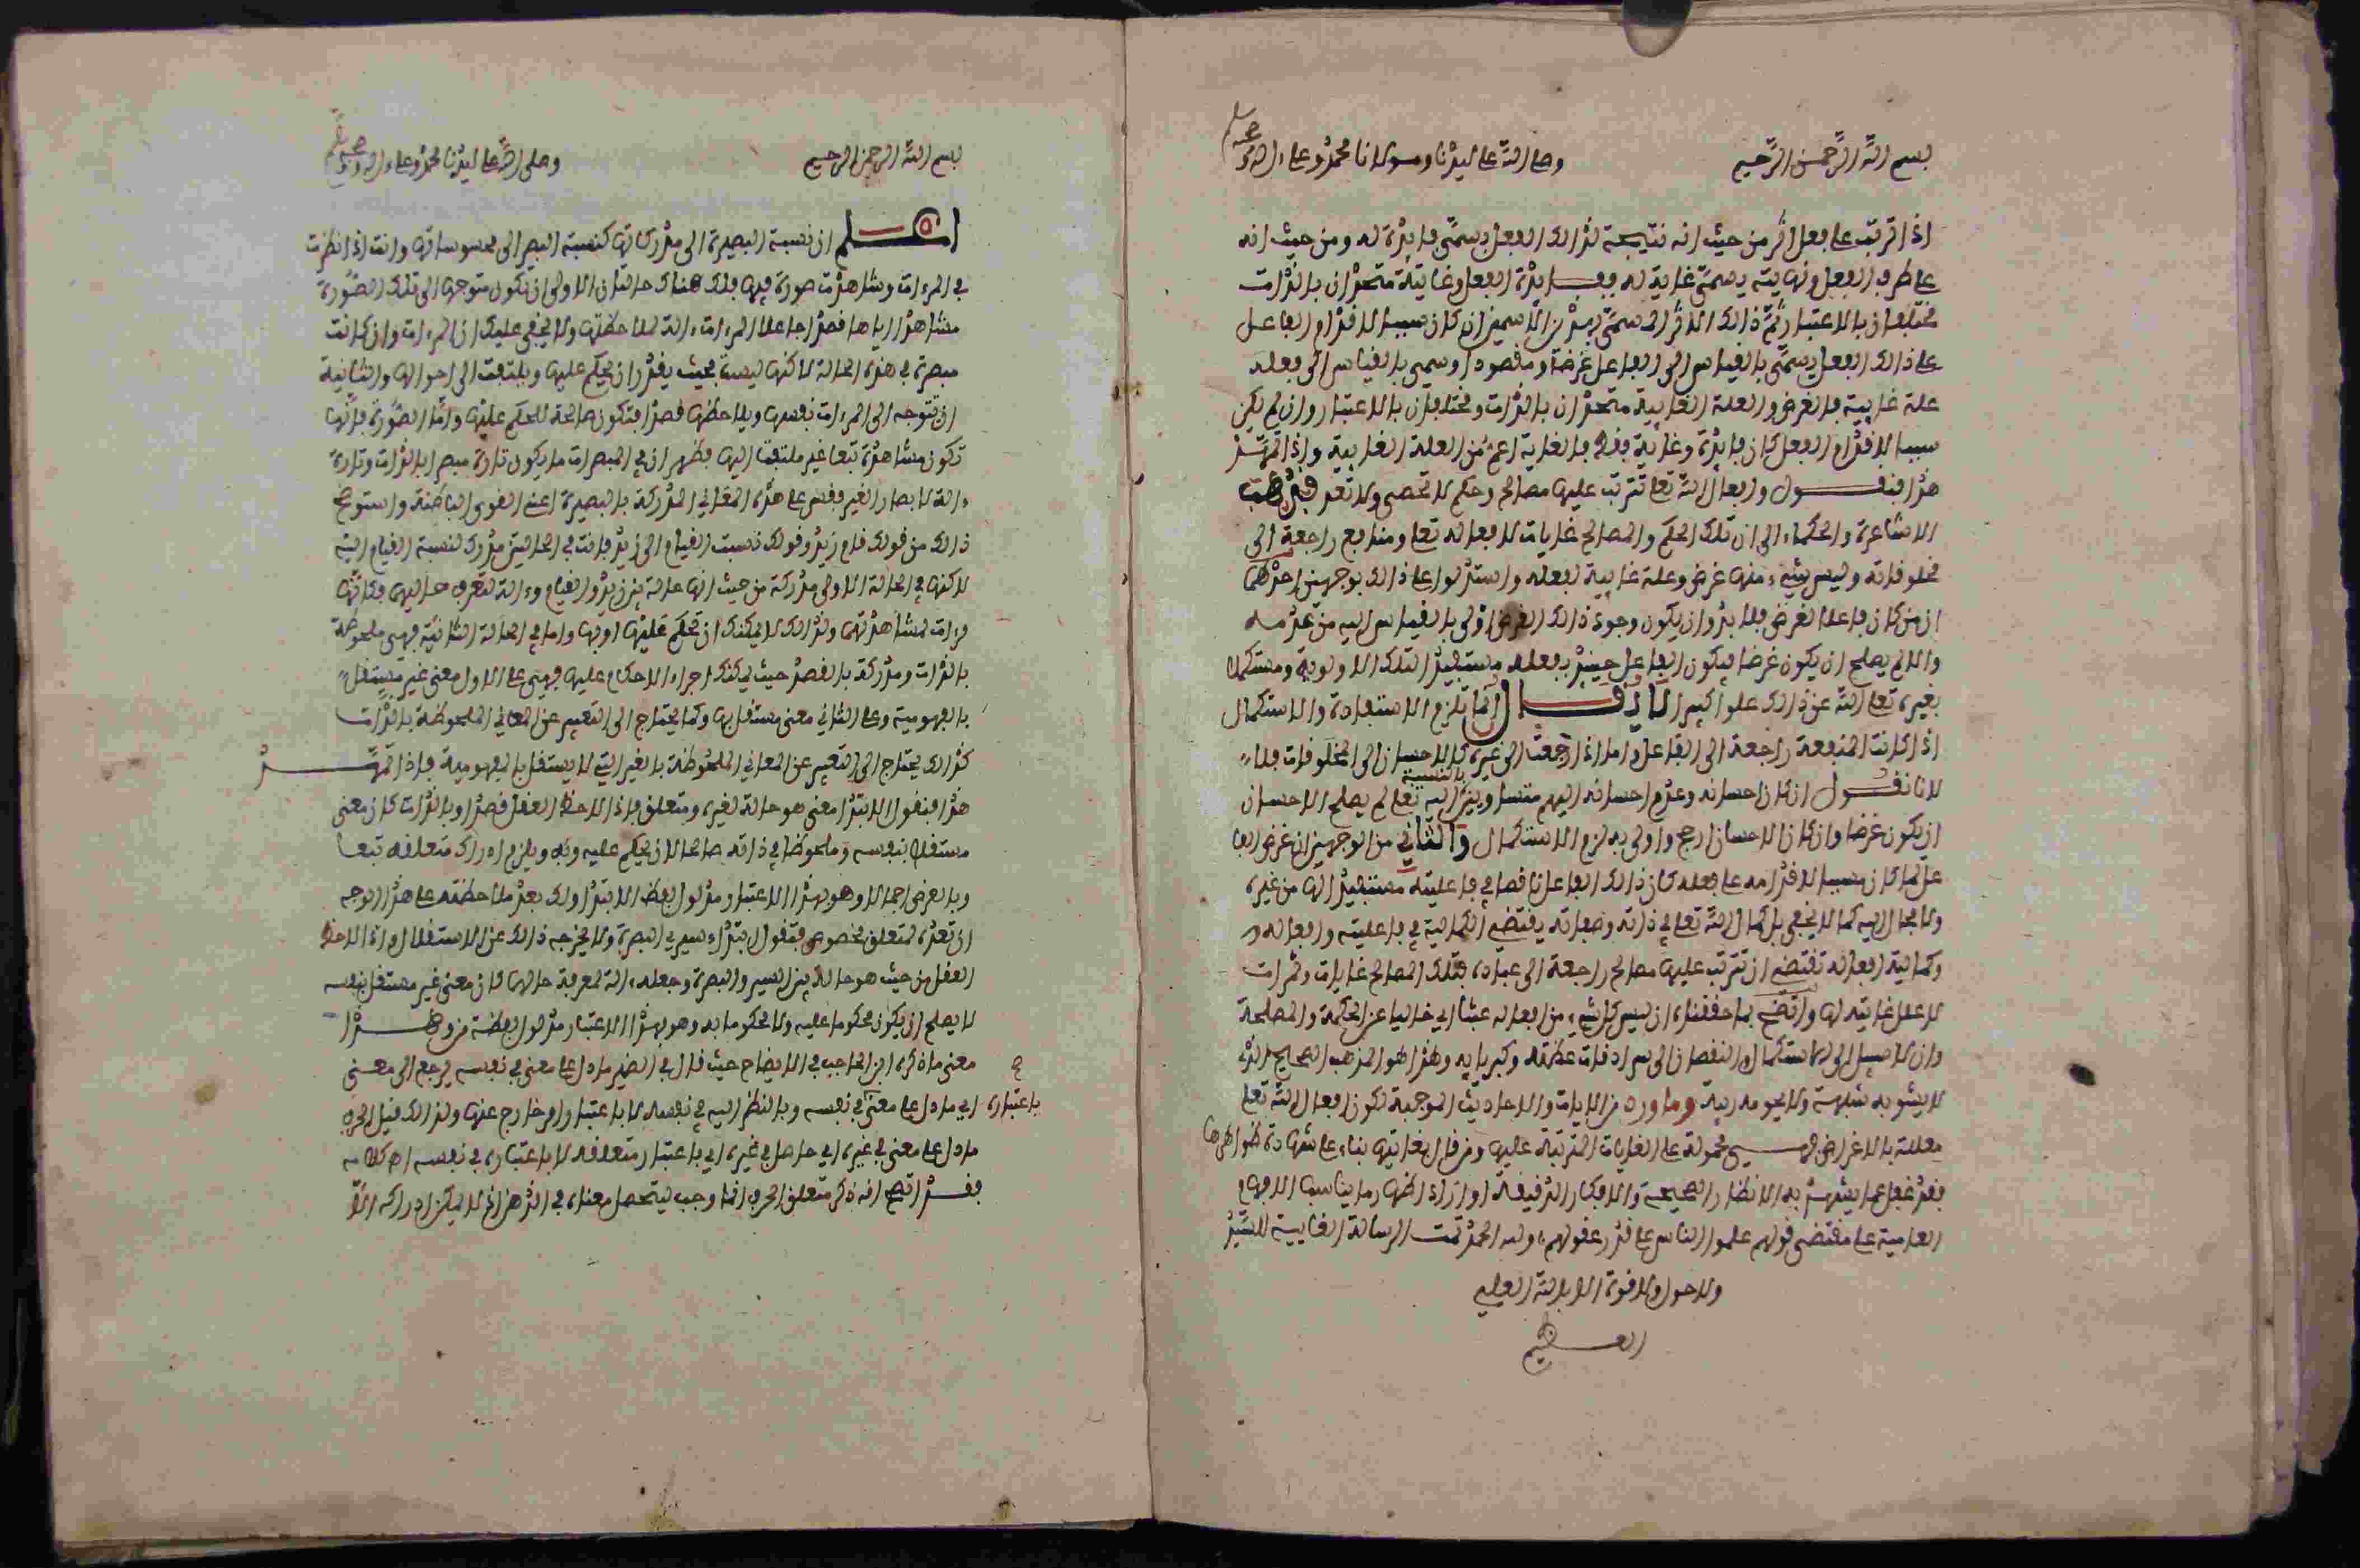 بسم الله الرحمن الرحيم وصلى الله على سيدنا ومولانا محمد وعلى ءاله وصحبه وسلم
اذا ترتب على فعل اثر من حيث انه نتيجة لذالك الفعل يسمى فايدة له ومن حيث انه
على طرف الفعل ونهايته يسمى غاية له ففايدة الفعل وغايته متحدان بالذات
مختلفان بالاعتبار ثم ذالك الاثر المسمى بهذين الاسمين ان كان سببا لاقدام الفاعل
على ذالك الفعل يسمى بالقياس الى الفاعل غرضا ومقصودا ويسمى بالقياس الى فعله
علة غايية فالغرض والعلة الغايية متحدان بالذات ومختلفان بالاعتبار وان لم يكن
سببا للاقدام الفعل كان فايدة وغاية فقط فالغاية اعم من العلة الغايية واذا تمهد
هذا فنقول وافعال الله تعلى تترتب عليها مصالح وحكم لا تحصى ولا تعد فذهب
الاشاعرة والحكماء الى ان تلك الحكم والمصالح غايات لافعاله تعلى ومنافع راجعة الى
مخلوقاته وليس شيء منها غرض وعلة غايية لفعله واستدلوا على ذالك بوجهين احدهما
ان من كان فاعلا لغرض فلا بد وان يكون وجود ذالك الغرض اولى بالقياس اليه من عدمه
والا لم يصلح ان يكون غرضا فيكون الفاعل حينئذ بفعله مستفيدا لتلك الاولوية ومستكملا
بغيره تعلى الله عن ذالك علوا كبيرا لا يقال انما تلزم الاستفادة والاستكمال
اذا كانت المنفعة راجعة الى الفاعل واما اذا رجعت الى غيره كالاحسان الى المخلوقات فلا
لانا نقول ان كان احسانه وعدم احسانه اليهم متساويين بالنسبة اليه تعلى لم يصلح الاحسان
ان يكون غرضا وان كان الاحسان ارجح واولى به لزم الاستكمال والثاني من الوجهين ان غرض الفا
عل لما كان سببا لاقدامه على فعله كان ذالك الفاعل ناقصا في فاعليته مستفيدا لها من غيره
ولا مجال اليه كما لا يخفى بل كمال الله تعلى في ذاته وصفاته يقتضي الكمالية في فاعليته وافعاله
وكمالية افعاله تقتضي ان تترتب عليها مصالح راجعة الى عباده فتلك المصالح غايات وثمرات
لا علل غايية لها واتضح بما حققناه ان ليس كل شيء من افعاله عبثا اي خاليا عن الحكمة والمصلحة
وان لا سبيل الى الاستكمال والنقصان الى سرادقات عظمته وكبريايه وهذا هو المذهب الصحيح الذي
لا يشوبه شبهة ولا يحومه ريبة وما ورد من الايات والاحاديث الموجبة لكون افعال الله تعلى
معللة بالاغراض فهي محمولة على الغايات المترتبة عليها ومن قال بغايتها بناء على شهادة ظواهرها
فقد غفل عما يشهد به الانظار الصحيحة والافكار الدقيقة او اراد اظهار ما يناسب الافهام
العامية على مقتضى قولهم علموا الناس على قدر عقولهم وله الحمد تمت الرسالة الغايية للسيد
ولا حول ولا قوة الا بالله العلي
العظيم
بسم الله الرحمن الرحيم وصلى الله على سيدنا محمد وعلى ءاله وصحبه وسلم
اعلم ان نسبة البصيرة الى مدركاتها كنسبة البصر الى محسوساتها وانت اذا نظرت
في المرءات وشاهدت صورة فيها فلك هناك حالتان الاولى ان تكون متوجها الى تلك الصورة
مشاهدا اياها قصدا جاعلا المرءات ءالة لملاحظتها ولا يخفى عليك ان المرءات وان كانت
مبصرة في هذه الحالة لاكنها ليست بحيث يقدر ان يحكم عليها ويلتفت الى احوالها والثانية
ان تتوجه الى المرءات نفسها وتلاحظها قصدا فتكون صالحة للحكم عليها واما الصورة فانها
تكون مشاهدة تبعا غير ملتفتا اليها فظهر ان في المبصرات ما يكون تارة مبصرا بالذات وتارة
ءالة لابصار الغير فقس على هذه المعاني المدركة بالبصيرة اعني القوى الباطنة واستوضح
ذالك من قولك قام زيد وقولك نسبت القيام الى زيد فانت في الحالتين مدرك لنسبة القيام اليه
لاكنها في الحالة الاولى مدركة من حيث انها حالة بين زيد والقيام وءالة لتعرف حاليهما فكانها
مرءات لمشاهدتهما ولذالك لا يمكنك ان تحكم عليها او بها واما في الحالة الثانية فهي ملحوظة
بالذات ومدركة بالقصد حيث يمكنك اجراء الاحكام عليها فهي على الاول معنى غير مستقل
بالمفهومية وعلى الثاني معنى مستقل بها وكما يحتاج الى التعبير عن المعاني الملحوظة بالذات
كذالك يحتاج الى التعبير عن المعاني الملحوظة بالغير التي لا يستقل بالمفهومية فاذا تمهد
هذا فنقول الابتدا معنى هو حالة لغيره ومتعلق فاذا لاحظ العقل قصدا وبالذات كان معنى
مستقلا بنفسه وملحوظا في ذاته صالحا لان يحكم عليه وبه ويلزم ادراك متعلقه تبعا
وبالعرض اجمالا وهو بهذا الاعتبار مدلول لفظ الابتدا ولك بعد ملاحظته على هذا الوجه
ان تعده لمتعلق مخصوص فتقول ابتداء سير البصرة ولا يخرجه ذالك عن الاستقلال واذا لاحظ
العقل من حيث هو حالة بين السير والبصرة وجعله ءالة لمعرفة حالهما كان معنى غير مستقل بنفسه
لا يصلح ان يكون محكوما عليه ولا محكوما به وهو بهذا الاعتبار مدلول لفظة من وهذا
معنى ما ذكره ابن الحاجب في الايضاح حيث قال في الضمير ما دل على معنى في نفسه يرجع الى معنى
باعتباره اي ما دل على معنى في نفسه وبالنظر اليه في نفسه لا باعتبار امر خارج عنه ولذالك قيل الحرف
ما دل على معنى في غيره اي حاصل في غيره اي باعتبار متعلقه لا باعتباره في نفسه اه كلامه
فقد اتضح انه ذكر متعلق الحرف انما وجب ليتحصل معناه في الذهن اذ لا يمكن ادراكه الا